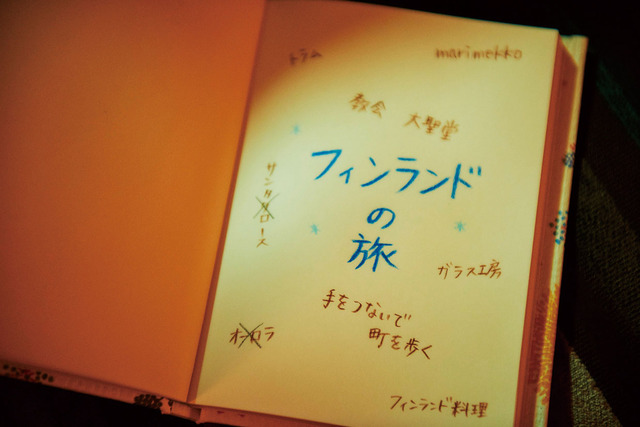 トラム
marimekko
教会 大聖堂
フィンランド
の
旅
サンタクロース
ガラス工房
手をつないで
町を歩く
オーロラ
フィンランド料理